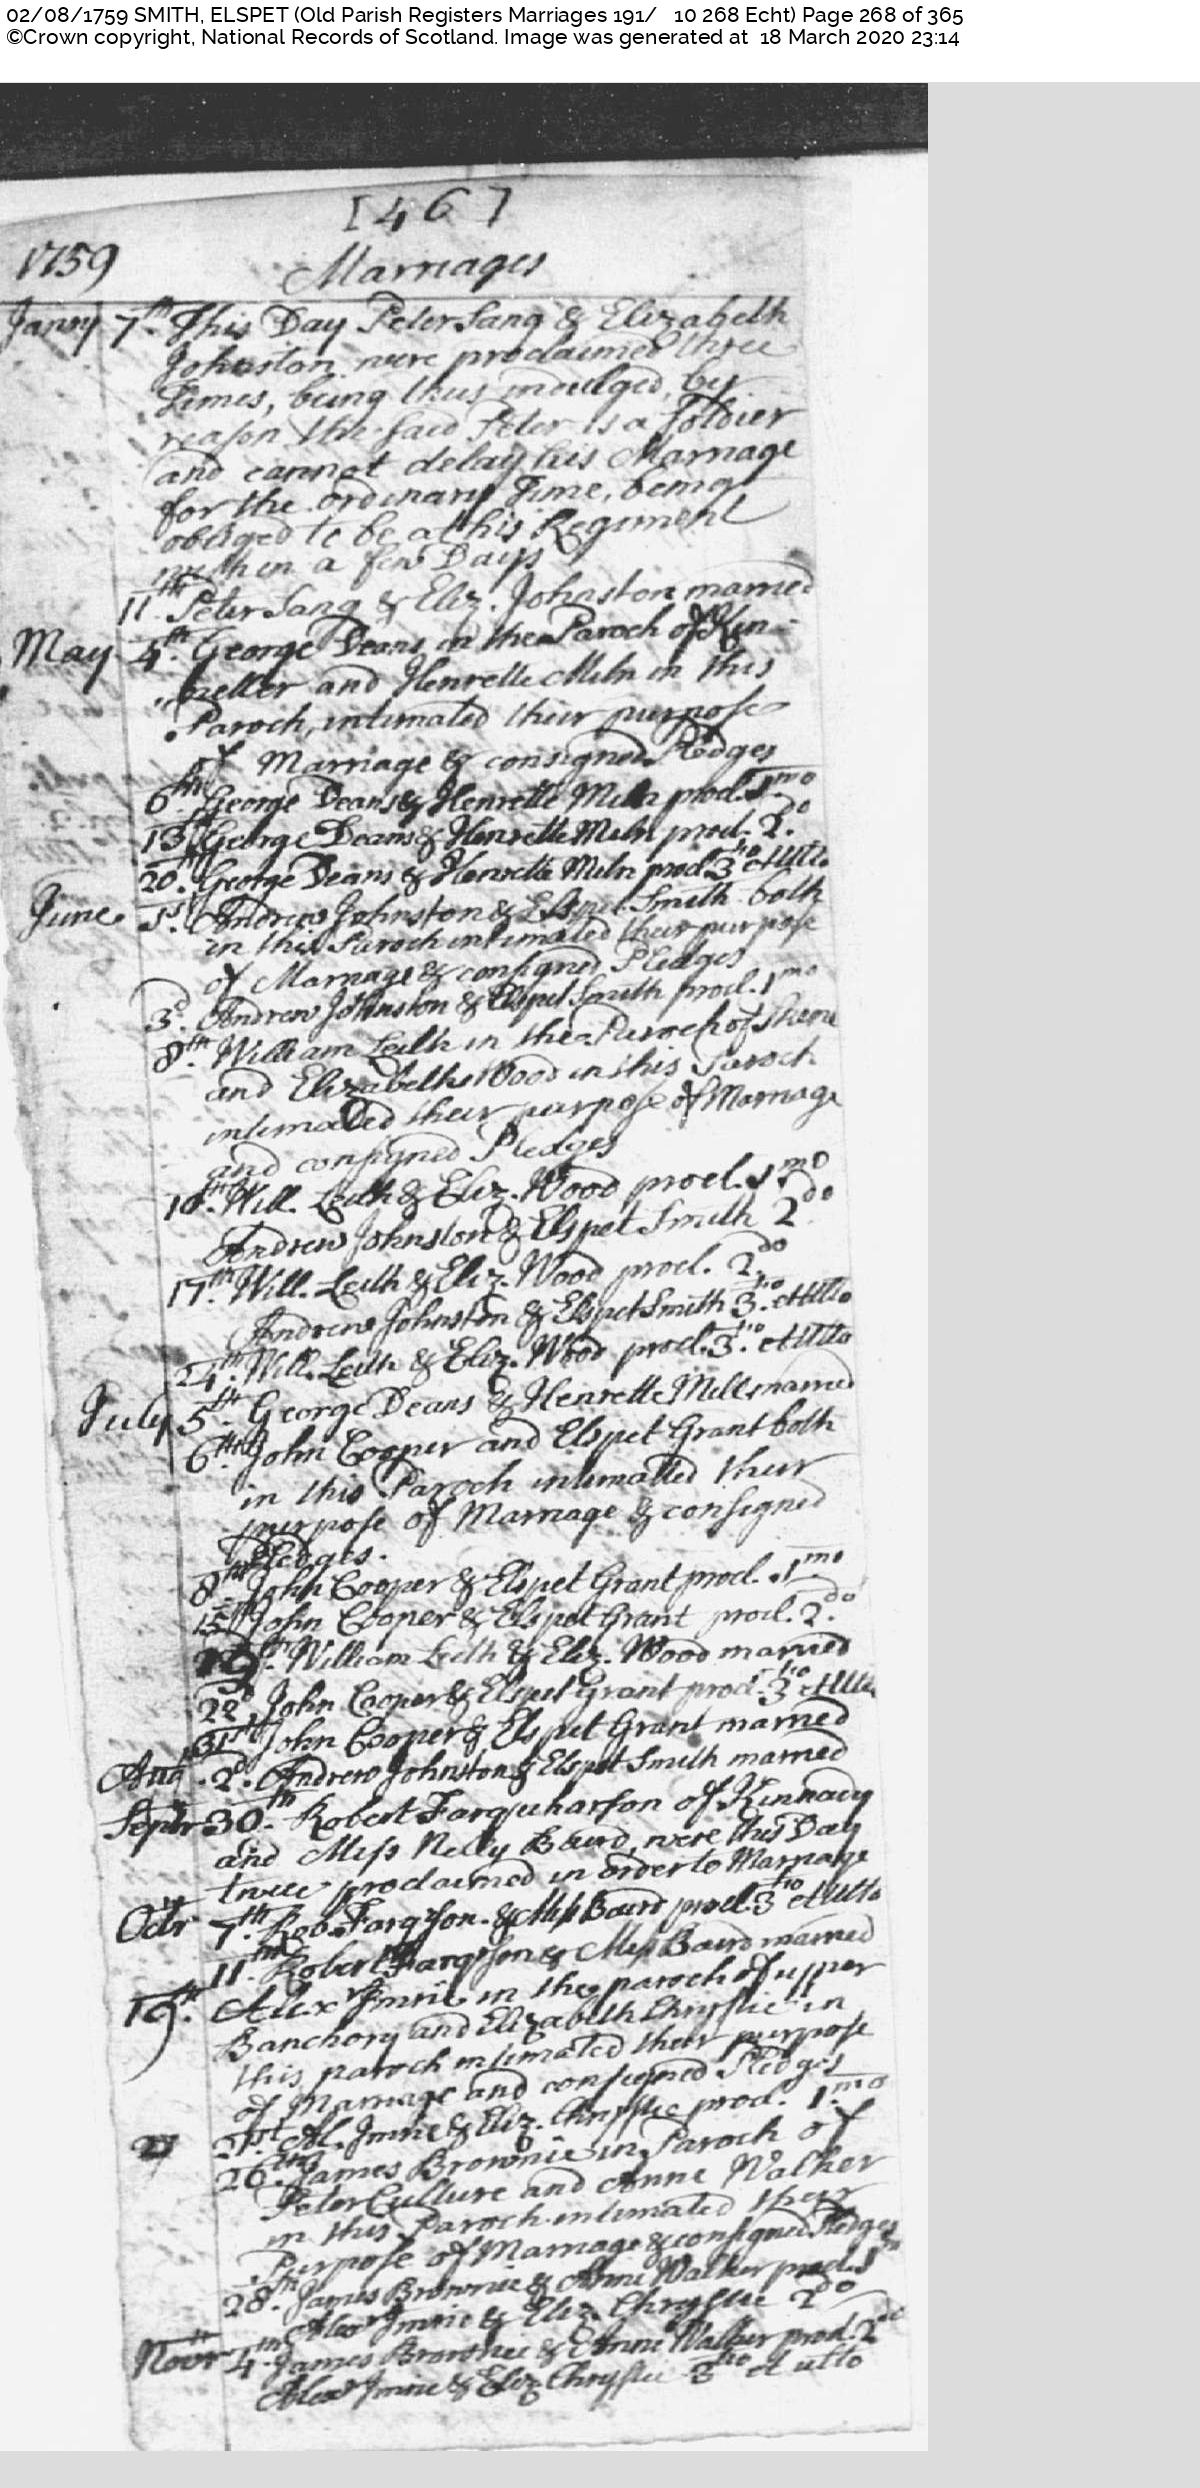 02/08/1759 SMITH, ELSPET (Old Parish Registers Marriages 191/ 10 268 Echt) Page 268 of 365
©Crown copyright, National Records of Scotland. Image was generated at 18 March 2020 23:14
[46]
1759 Marriages
Janry 7th. This Day Peter Sang & Elizabeth
Johnston were proclaimed three
Times, being thus indulged, by
reason the said Peter is a Soldier
and cannot delay his Marriage
for the ordinary Time, being
obliged to be at his Regiment
within a few Days
11th Peter Sang & Eliz. Johnston married
May 4th. George Deans in the Paroch of Kin-
neller and Henrette Miln in this
Paroch, intimated their purpose
of Marriage & consigned Pledges
6th. George Deans & Henrette Miln procl. 1mo
13th George Deans & Henrette Miln procl. 2do
20th. George Deans & Henrette Miln procl. 3tio et ulto
June 1st. Andrew Johnston & Elspet Smith both
in this Paroch intimated their purpose
of Marriage & consigned Pledges
3d. Andrew Johnston & Elspet Smith procl. 1mo
8th. William Leith in the Paroch of Skene
and Elizabeth Wood in this Paroch
intimated their purpose of Marriage
and consigned Pledges
10th. Will. Leith & Eliz. Wood procl. 1mo
Andrew Johnston & Elspet Smith 2do
17th. Will. Leith & Eliz. Wood procl. 2do
Andrew Johnston & Elspet Smith 3tio. et ulto
24th. Will. Leith & Eliz. Wood procl. 3tio. et ulto
July 5th. George Deans & Henrette Mill married
6th. John Cooper and Elspet Grant both
in this Paroch intimatted their
purpose of Marriage & consigned
Pledges.
8th John Cooper & Elspet Grant procl. 1mo
15th John Cooper & Elspet Grant procl. 2do
19th. William Leith & Eliz. Wood married
22d John Cooper & Elspet Grant procl. 3tio et ulto
31st John Cooper & Elspet Grant married
Aug. 2d. Andrew Johnston & Elspet Smith married
Septr 30th. Robert Farquharson of Kinnady
and Miss Nelly Baird, were this Day
twice proclaimed in order to Marriage
Octr 7th. Rob. Farqrson. & Miss Baird procl. 3tio et ulto
11th. Robert Farqrson & Miss Baird married
19th. Alexr Imrie in the paroch of upper
Banchory and Elizabeth Chrystie in
this paroch intimated their purpose
of Marriage and consigned Pledges
21st. Al. Imrie & Eliz. Chrystie procl. 1mo
26th. James Brownie in Paroch of
Peter Culture and Anne Walker
in this Paroch intimated their
Purpose of Marriage & consigned Pledges
28th. James Brownie & Anne Walker procl. 1mo
Alexr Imrie & Eliz. Chrystie 2do
Novr 4th. James Brownie & Anne Walker procl. 2do
Alexr Imrie & Eliz Chrystie 3tio et ulto